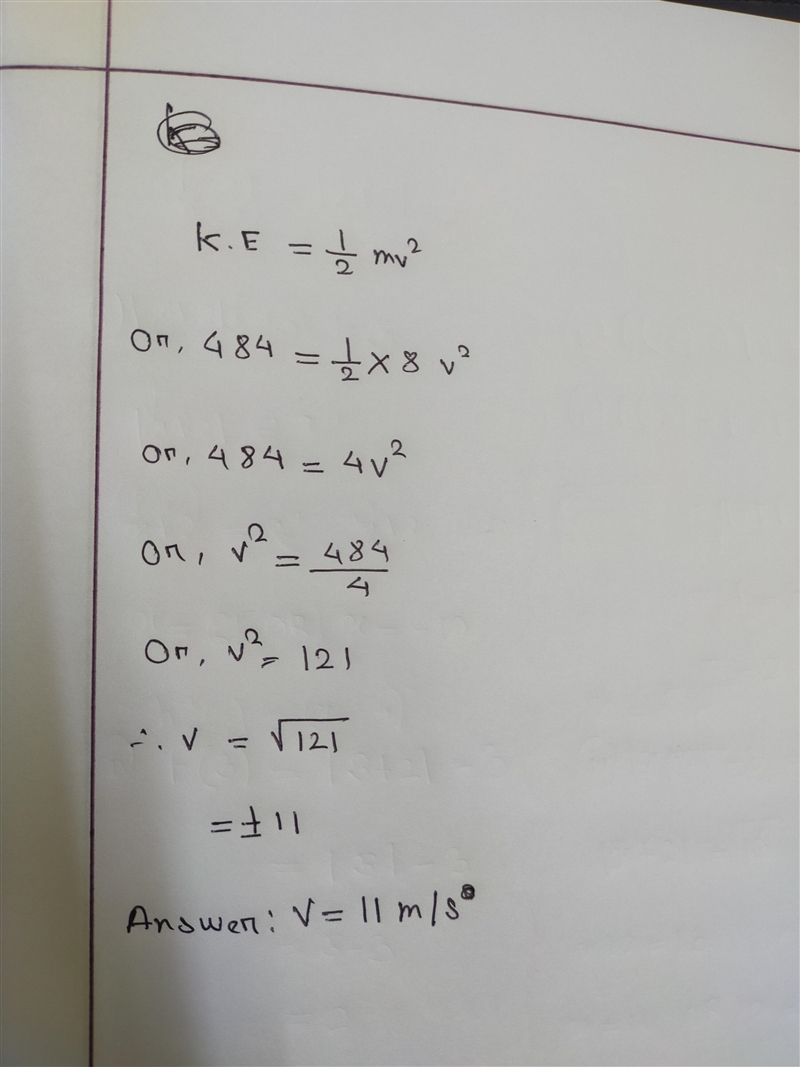 K.E = 1/2 mv²
Or, 484 = 1/2 × 8 v²
Or, 484 = 4v²
Or, v² = 484/4
Or, v² = 121
∴ v = √121
= ±11
Answer: v = 11 m/s